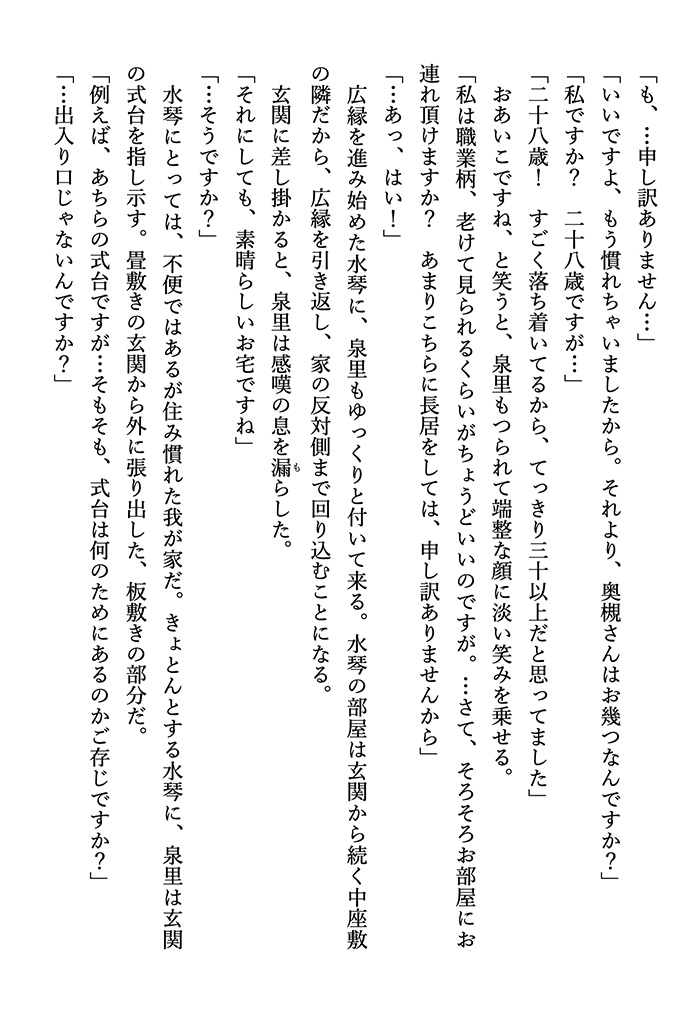 「も、…申し訳ありません…」
「いいですよ、もう慣れちゃいましたから。それより、奥槻さんはお幾つなんですか？」
「私ですか？　二十八歳ですが…」
「二十八歳！　すごく落ち着いてるから、てっきり三十以上だと思ってました」
　おあいこですね、と笑うと、泉里もつられて端整な顔に淡い笑みを乗せる。
「私は職業柄、老けて見られるくらいがちょうどいいのですが。…さて、そろそろお部屋にお
連れ頂けますか？　あまりこちらに長居をしては、申し訳ありませんから」
「…あっ、はい！」
　広縁を進み始めた水琴に、泉里もゆっくりと付いて来る。水琴の部屋は玄関から続く中座敷
の隣だから、広縁を引き返し、家の反対側まで回り込むことになる。
　玄関に差し掛かると、泉里は感嘆の息を漏らした。
「それにしても、素晴らしいお宅ですね」
「…そうですか？」
　水琴にとっては、不便ではあるが住み慣れた我が家だ。きょとんとする水琴に、泉里は玄関
の式台を指し示す。畳敷きの玄関から外に張り出した、板敷きの部分だ。
「例えば、あちらの式台ですが…そもそも、式台は何のためにあるのかご存じですか？」
「…出入り口じゃないんですか？」